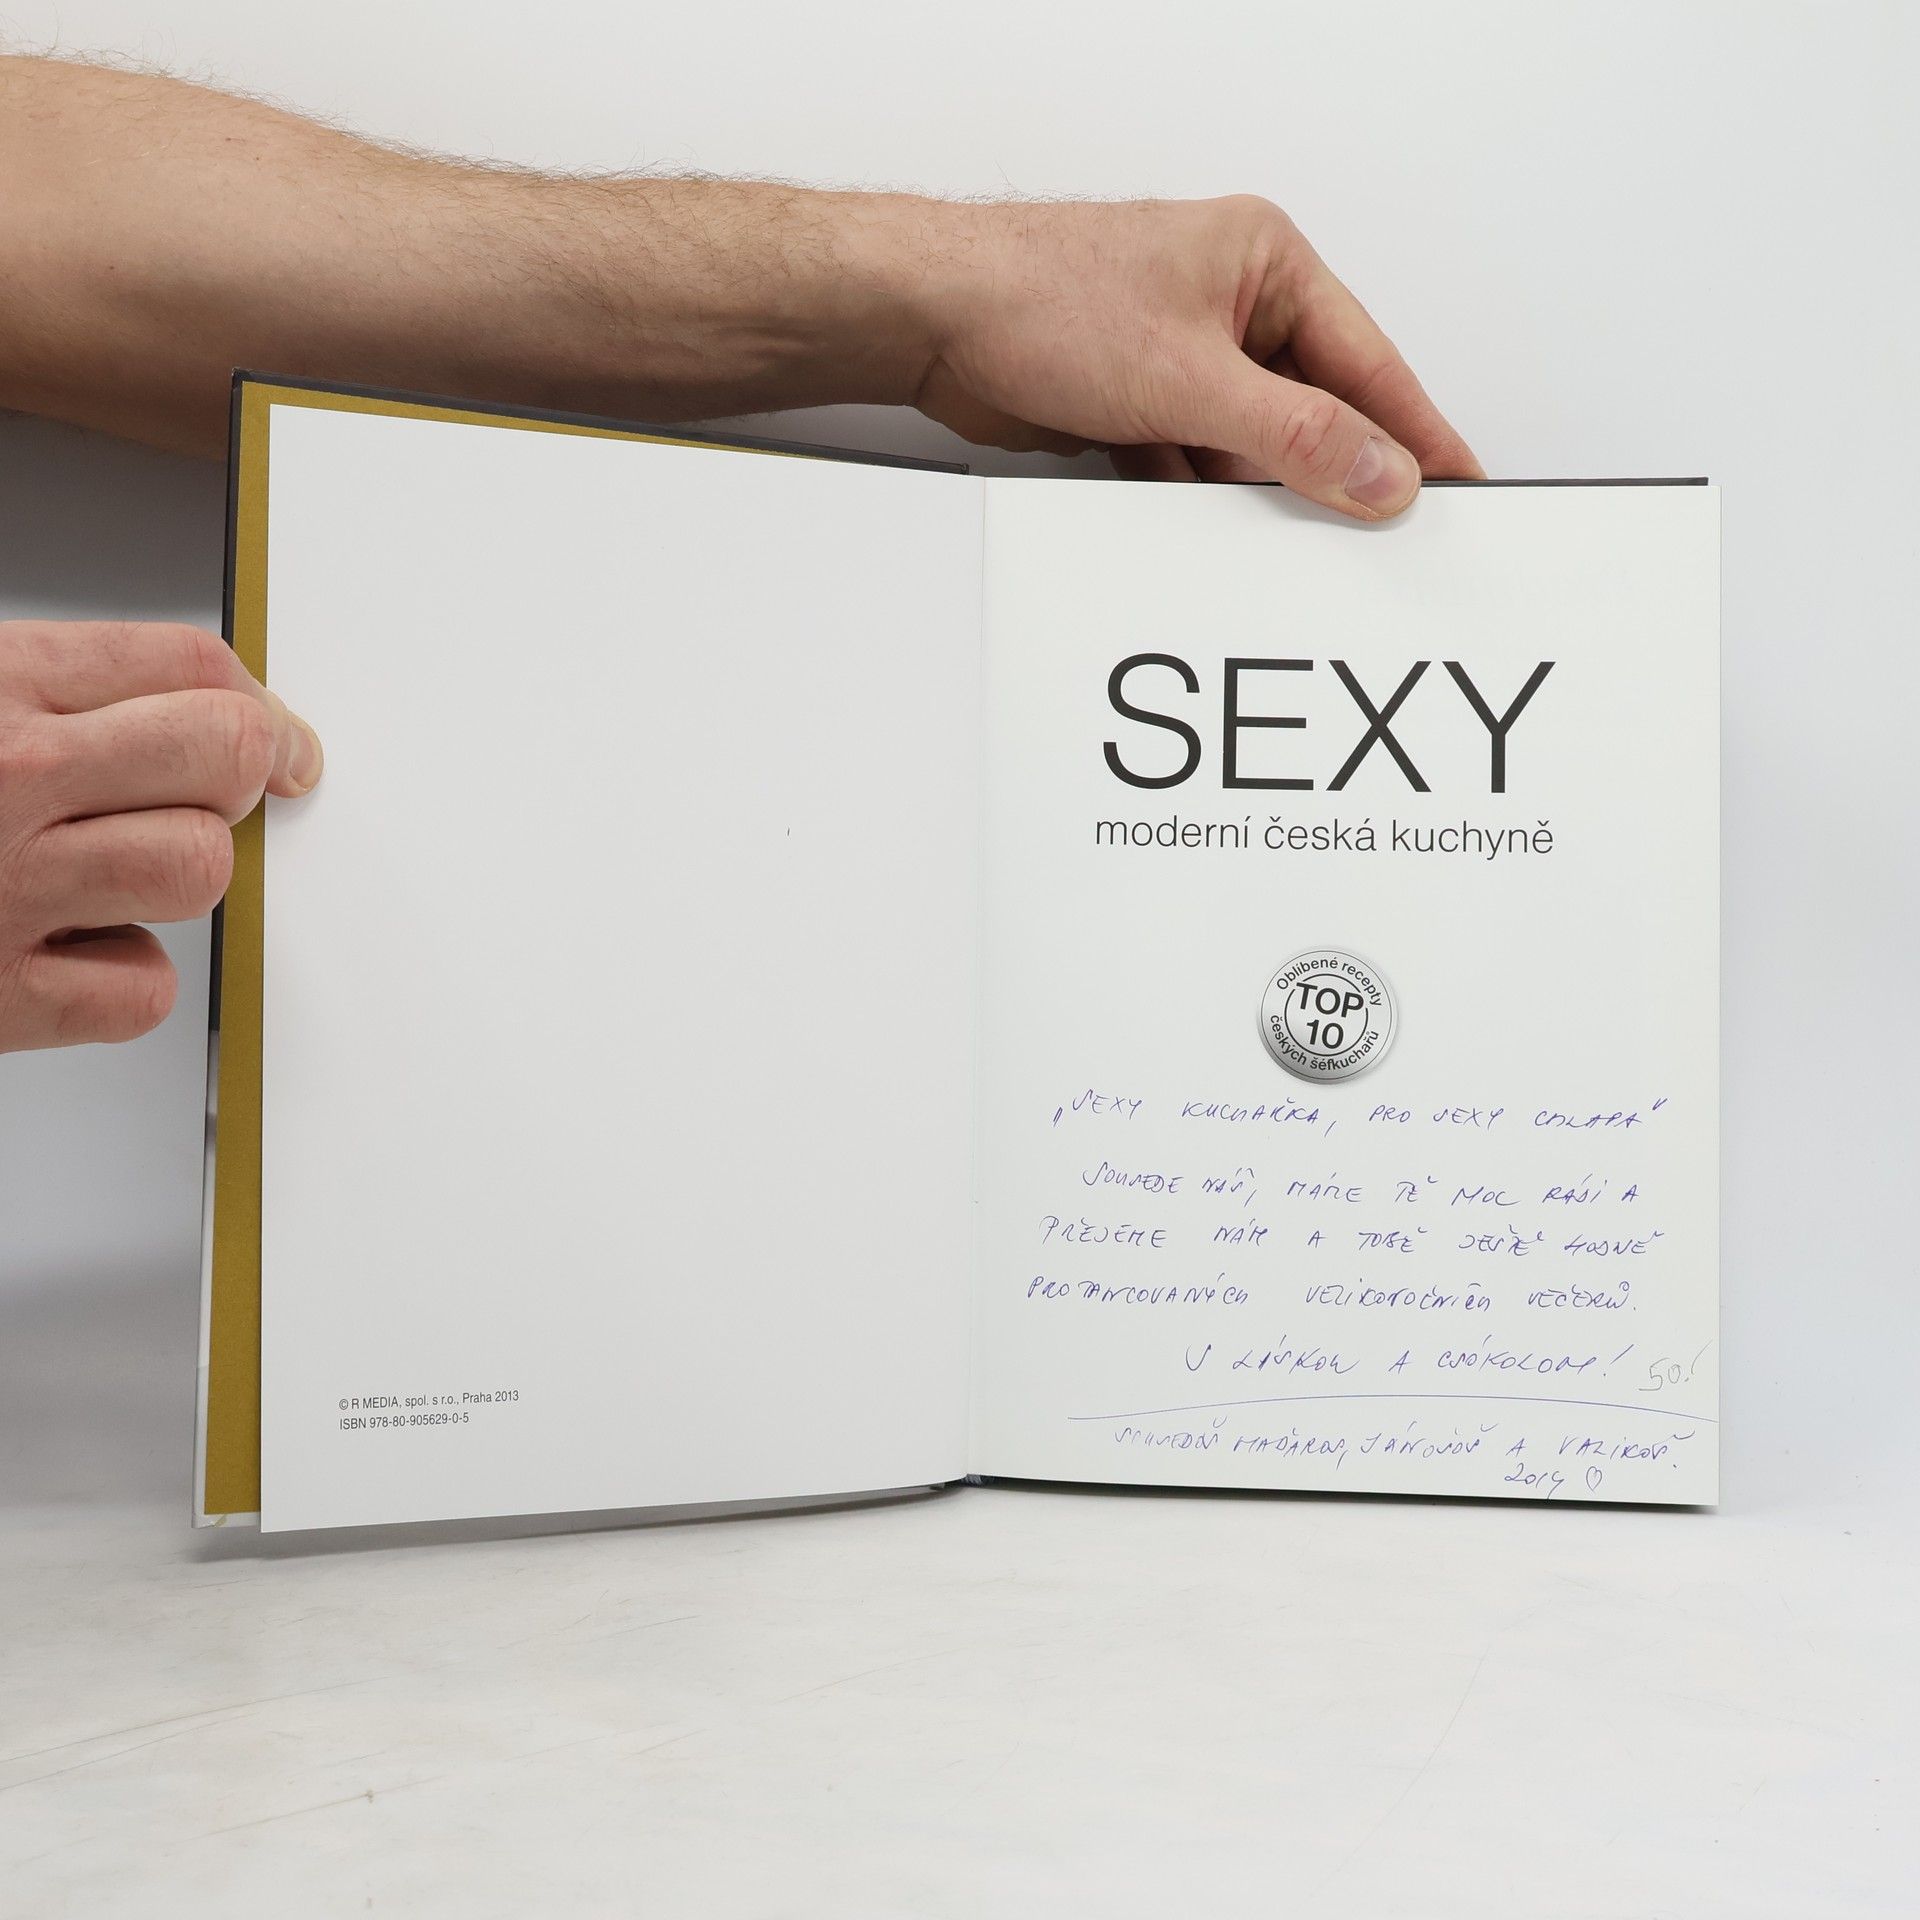 © R MEDIA, spol. s r.o., Praha 2013
ISBN 978-80-905629-0-5
SEXY
moderní česká kuchyně
Oblíbené recepty
TOP
10
českých šéfkuchařů
„SEXY KUCHAŘKA, PRO SEXY CHLAPA"
SOUSEDE NÁŠ, MÁME TĚ MOC RÁDI A
PŘEJEME NÁM A TOBĚ JEŠTĚ HODNĚ
PROTANCOVANÝCH VELIKONOČNÍCH VEČERŮ.
S LÁSKOU A CSÓKOLOM! 50!
MAĎAROŠ, JÁNOŠOŠ A VALIKOŠ.
2014 ♡